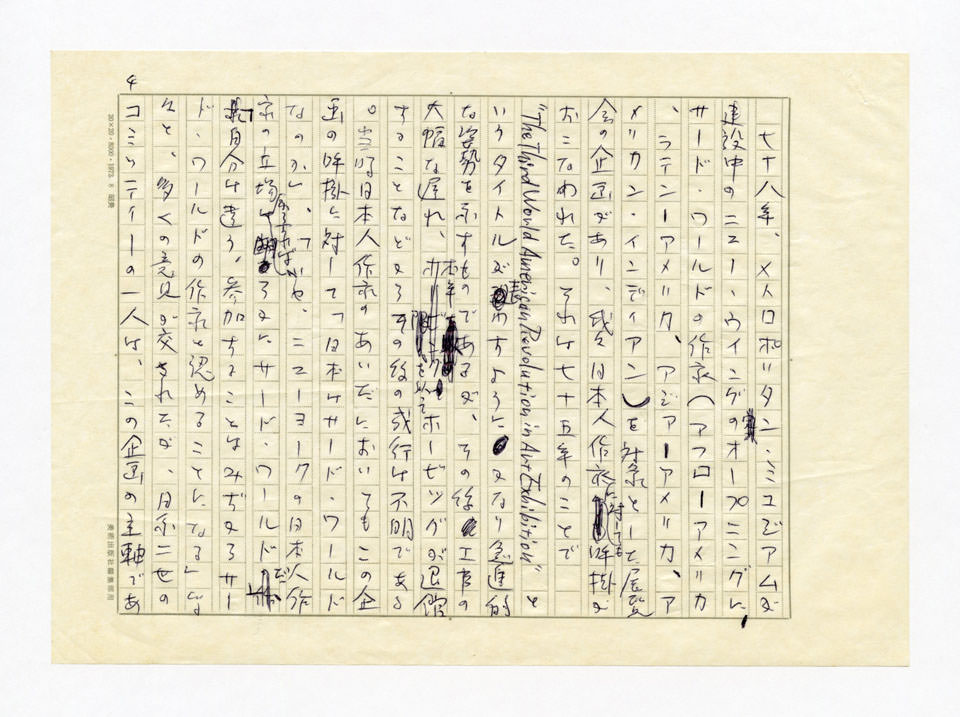 4
七十八年、メトロポリタン・ミュジアムが
建設中のニュー・ウイングのオープニングに
サード・ワールドの作家(アフローアメリカ
、ラテンーアメリカ、アジアーアメリカ、ア
メリカン・インディアン)を対象とした展覧
会の企画があり、我々日本人作家に対しても呼掛が
おこなわれた。それは七十五年のことで
"The Third World American Revolution in Art Exhibition" と
いうタイトルが表わすように、かなり急進的
な姿勢を示すものであるが、その後工事の
大幅な遅れ、本年を以てホービングが退館
することなどからその後の成行は不明である
。当時日本人作家のあいだにおいてもこの企
画の呼掛に対して「日本はサード・ワールド
なのか」、「ニューヨークの日本人作
家の立場からすればサード・ワールドだ
「自分は違う、参加することはみずからサー
ド・ワールドの作家と認めることになる」な
ど、多くの意見が交されたが、日系二世の
コミュニティーの一人は、この企画の主軸であ
20×20・8000・1973.8 昭舟
美術出版社編集部用